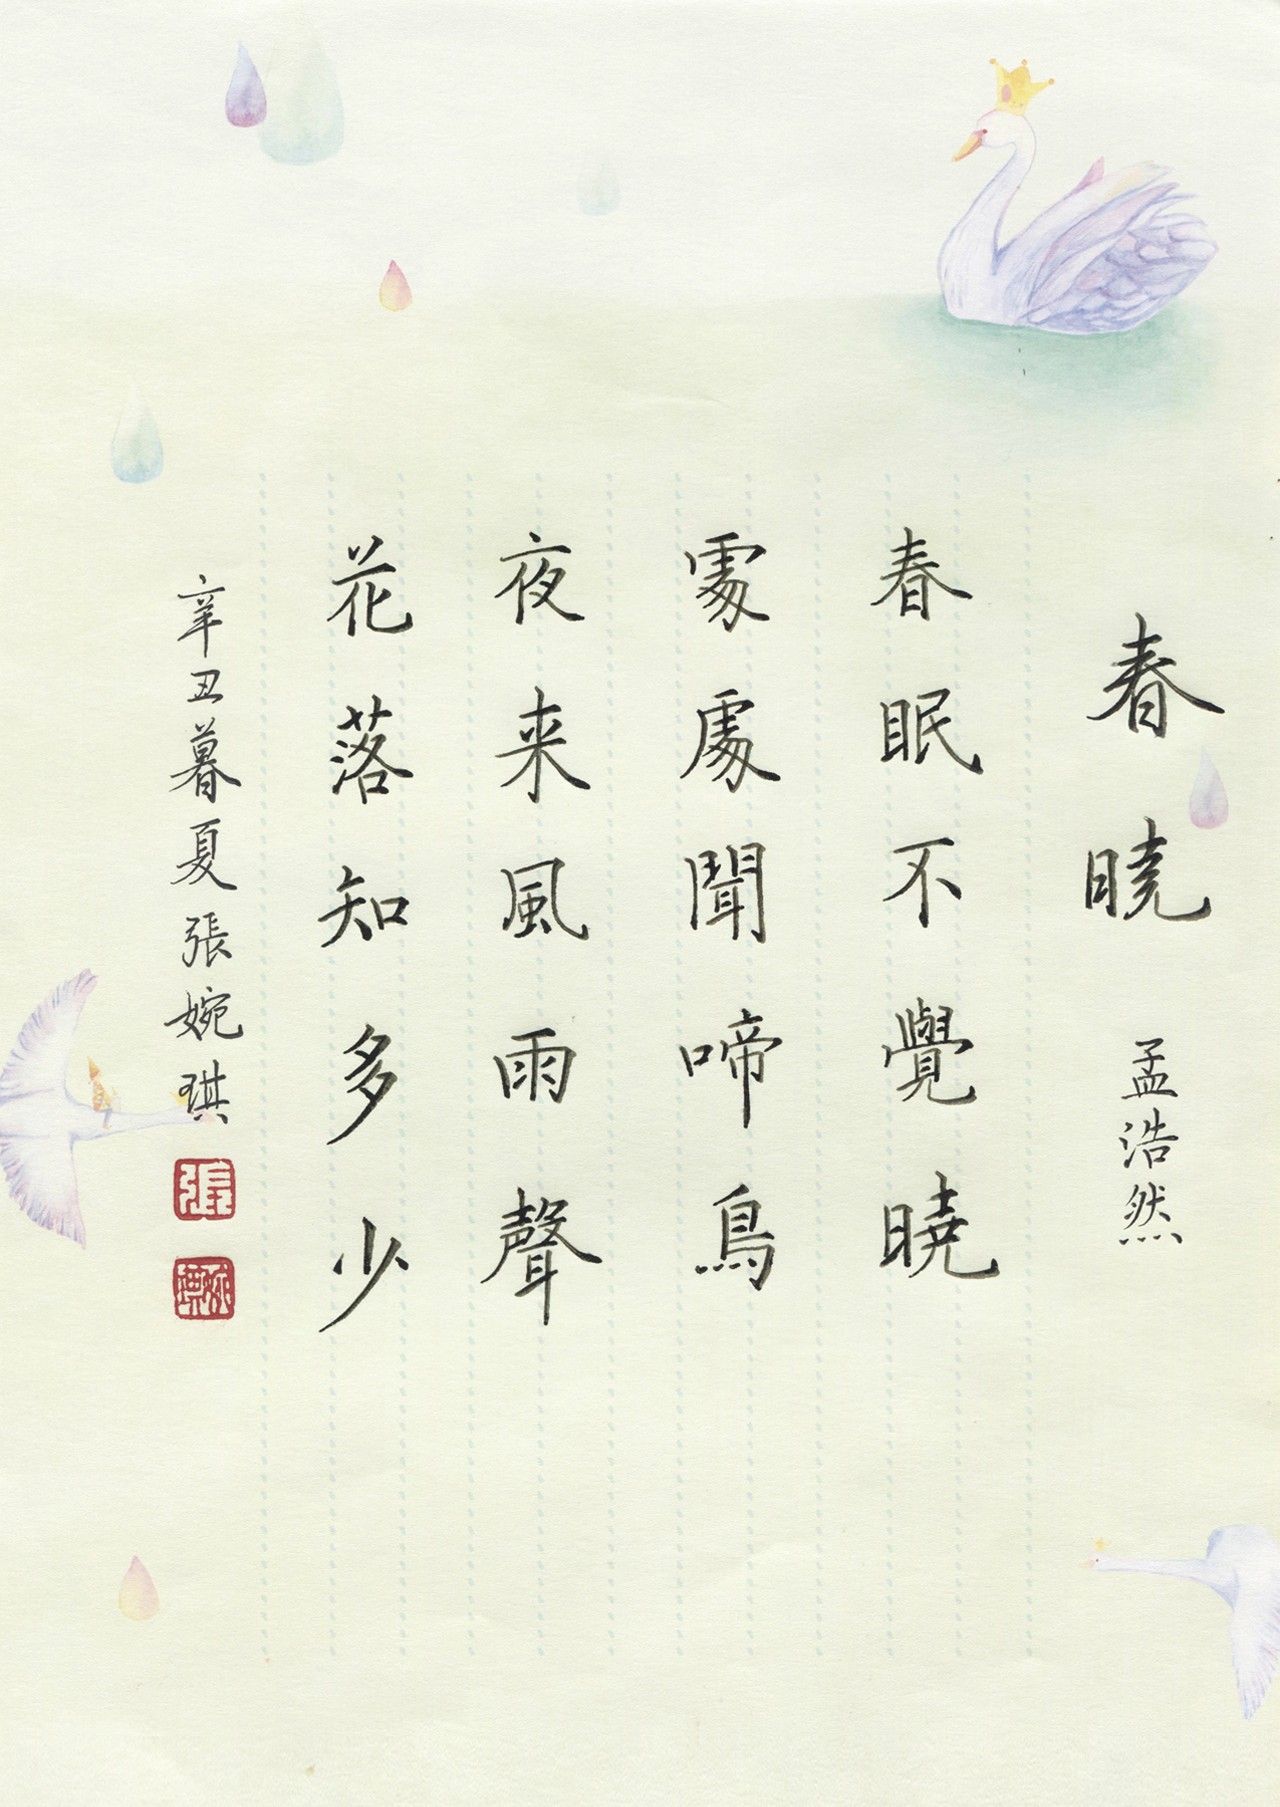 春曉 孟浩然
春眠不覺曉
處處聞啼鳥
夜来風雨聲
花落知多少
辛丑暮夏張婉琪
張